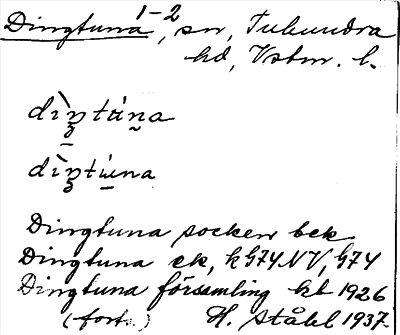 Dingtuna 1-2, sn, Tuhundra
hd, Vstm. l.
dìŋtúna
dìŋtúna
Dingtuna socken bek
Dingtuna ek, k G74 NV, G74
Dingtuna församling kb 1926
(forts.) H. Ståhl 1937.